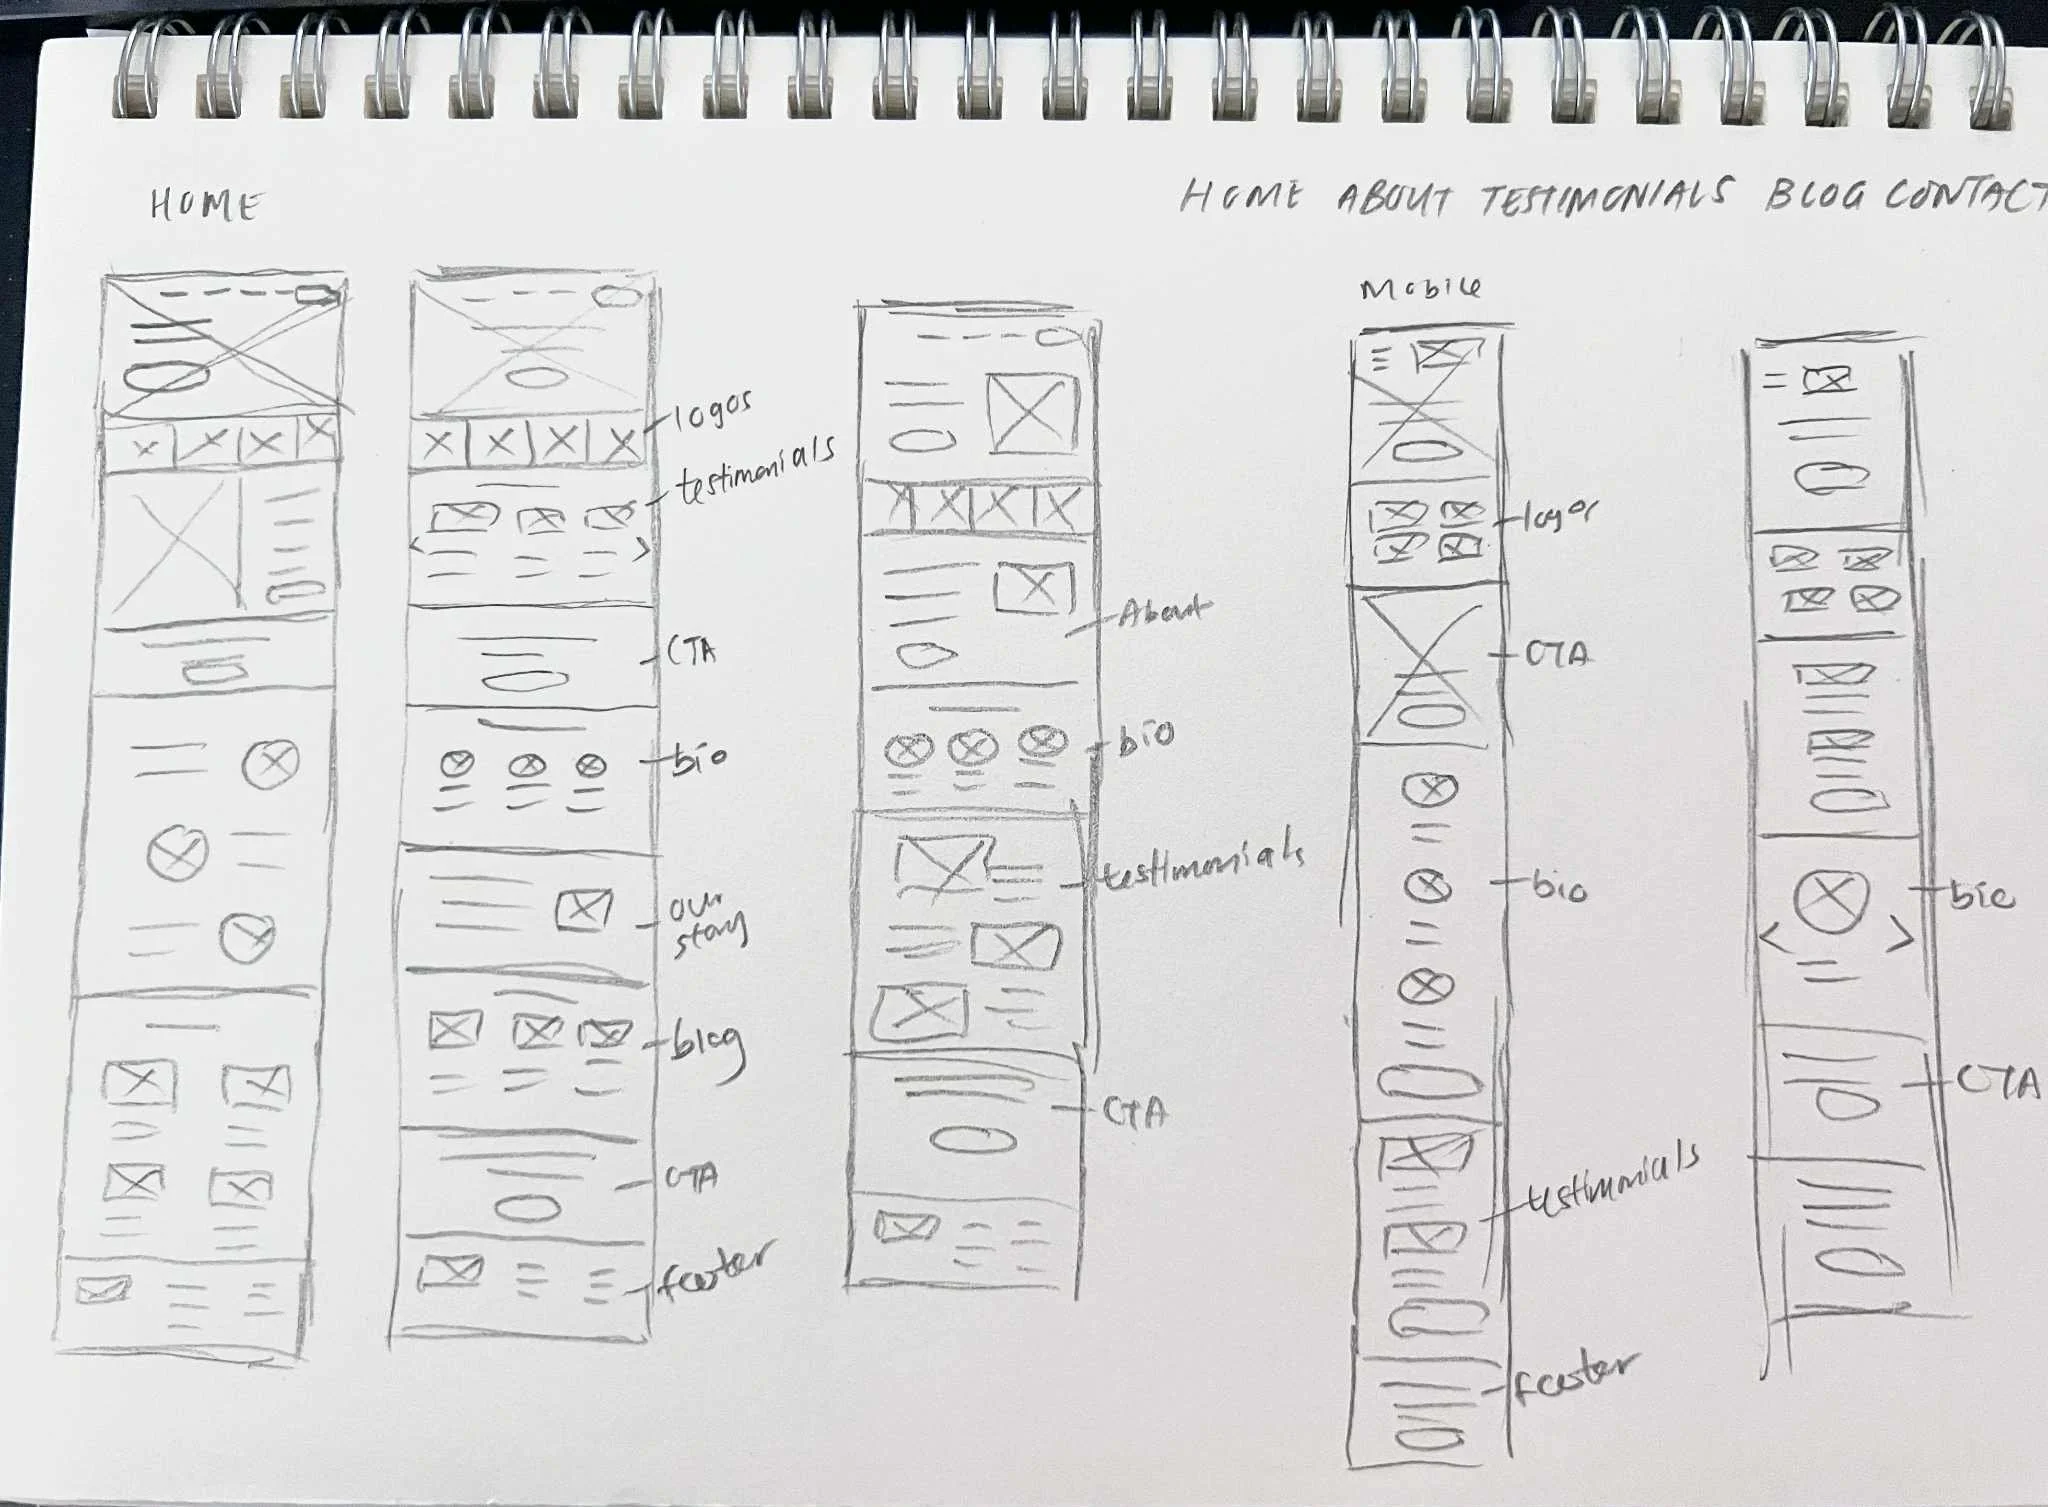 HOME
HOME ABOUT TESTIMONIALS BLOG CONTACT
logos
testimonials
CTA
bio
our
story
blog
CTA
footer
About
bio
testimonials
CTA
Mobile
logos
CTA
bio
testimonials
footer
bio
CTA